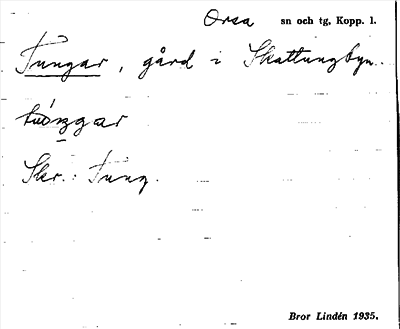 Orsa sn och tg, Kopp. l.
Tungar, gård i Skattungbyn.
Skr.: Tung.
Bror Lindén 1935.